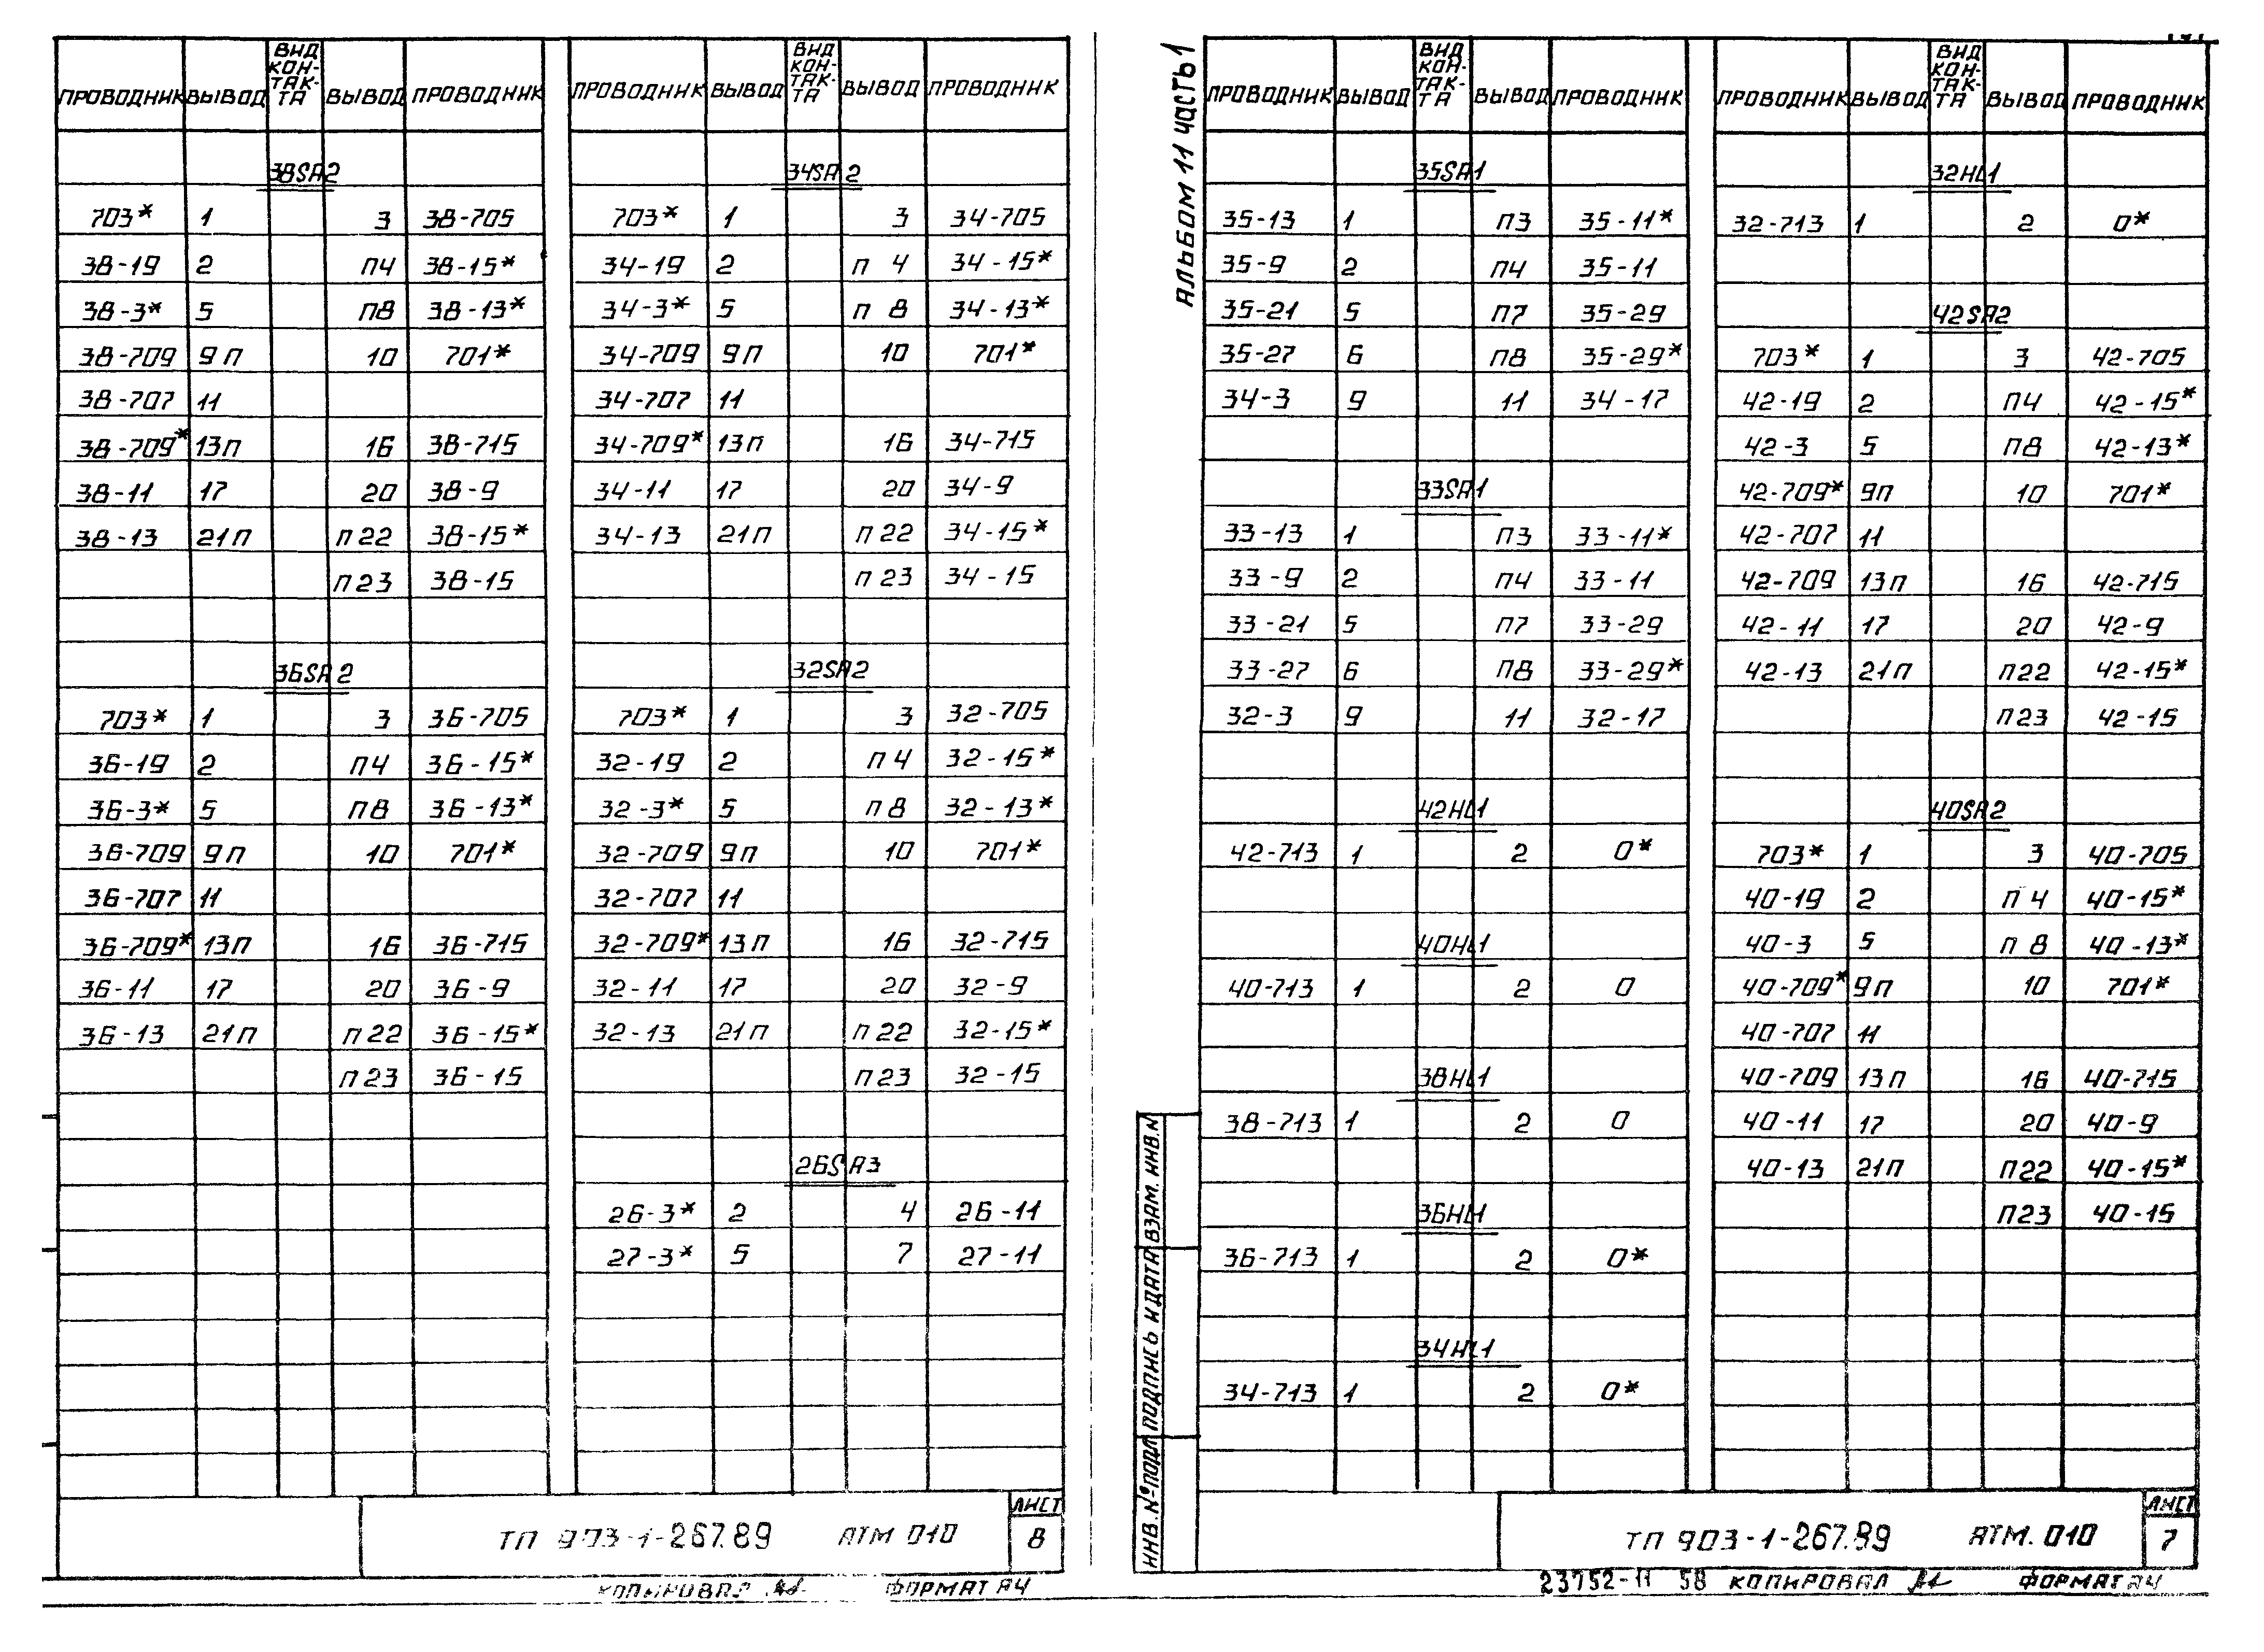 ПРОВОДНИК ВЫВОД ВИД КОН-ТАК-ТА ВЫВОД ПРОВОДНИК
38SA2
703* 1 3 38-705
38-19 2 П4 38-15*
38-3* 5 П8 38-13*
38-709 9П 10 701*
38-707 11
38-709* 13П 16 38-715
38-11 17 20 38-9
38-13 21П П22 38-15*
П23 38-15
36SA2
703* 1 3 36-705
36-19 2 П4 36-15*
36-3* 5 П8 36-13*
36-709 9П 10 701*
36-707 11
36-709* 13П 16 36-715
36-11 17 20 36-9
36-13 21П П22 36-15*
П23 36-15
ПРОВОДНИК ВЫВОД ВИД КОН-ТАК-ТА ВЫВОД ПРОВОДНИК
34SA2
703* 1 3 34-705
34-19 2 П 4 34-15*
34-3* 5 П 8 34-13*
34-709 9П 10 701*
34-707 11
34-709* 13П 16 34-715
34-11 17 20 34-9
34-13 21П П22 34-15*
П23 34-15
32SA2
703* 1 3 32-705
32-19 2 П4 32-15*
32-3* 5 П8 32-13*
32-709 9П 10 701*
32-707 11
32-709* 13П 16 32-715
32-11 17 20 32-9
32-13 21П П22 32-15*
П23 32-15
26SA3
26-3* 2 4 26-11
27-3* 5 7 27-11
ТП 903-1-267.89 АТМ 010
ЛИСТ
8
КОПИРОВАЛ ФОРМАТ А4
АЛЬБОМ 11 часть 1
ПРОВОДНИК ВЫВОД ВИД КОН-ТАК-ТА ВЫВОД ПРОВОДНИК
35SA1
35-13 1 П3 35-11*
35-9 2 П4 35-11
35-21 5 П7 35-29
35-27 6 П8 35-29*
34-3 9 11 34-17
33SA1
33-13 1 П3 33-11*
33-9 2 П4 33-11
33-21 5 П7 33-29
33-27 6 П8 33-29*
32-3 9 11 32-17
42HL1
42-713 1 2 0*
40HL1
40-713 1 2 0
38HL1
38-713 1 2 0
36HL1
36-713 1 2 0*
34HL1
34-713 1 2 0*
ПРОВОДНИК ВЫВОД ВИД КОН-ТАК-ТА ВЫВОД ПРОВОДНИК
32HL1
32-713 1 2 0*
42SA2
703* 1 3 42-705
42-19 2 П4 42-15*
42-3 5 П8 42-13*
42-709* 9П 10 701*
42-707 11
42-709 13П 16 42-715
42-11 17 20 42-9
42-13 21П П22 42-15*
П23 42-15
40SA2
703* 1 3 40-705
40-19 2 П 4 40-15*
40-3 5 П 8 40-13*
40-709* 9П 10 701*
40-707 11
40-709 13П 16 40-715
40-11 17 20 40-9
40-13 21П П22 40-15*
П23 40-15
ИНВ.№ПОДЛ ПОДПИСЬ И ДАТА ВЗАМ. ИНВ.N
ТП 903-1-267.89 АТМ. 010
ЛИСТ
7
23752-11 58 КОПИРОВАЛ ФОРМАТ А4